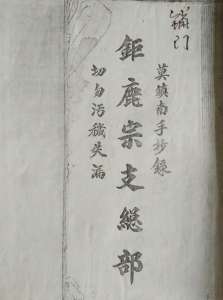 莫鎮南手抄錄
鉅鹿宗支總部
切勿污穢失漏